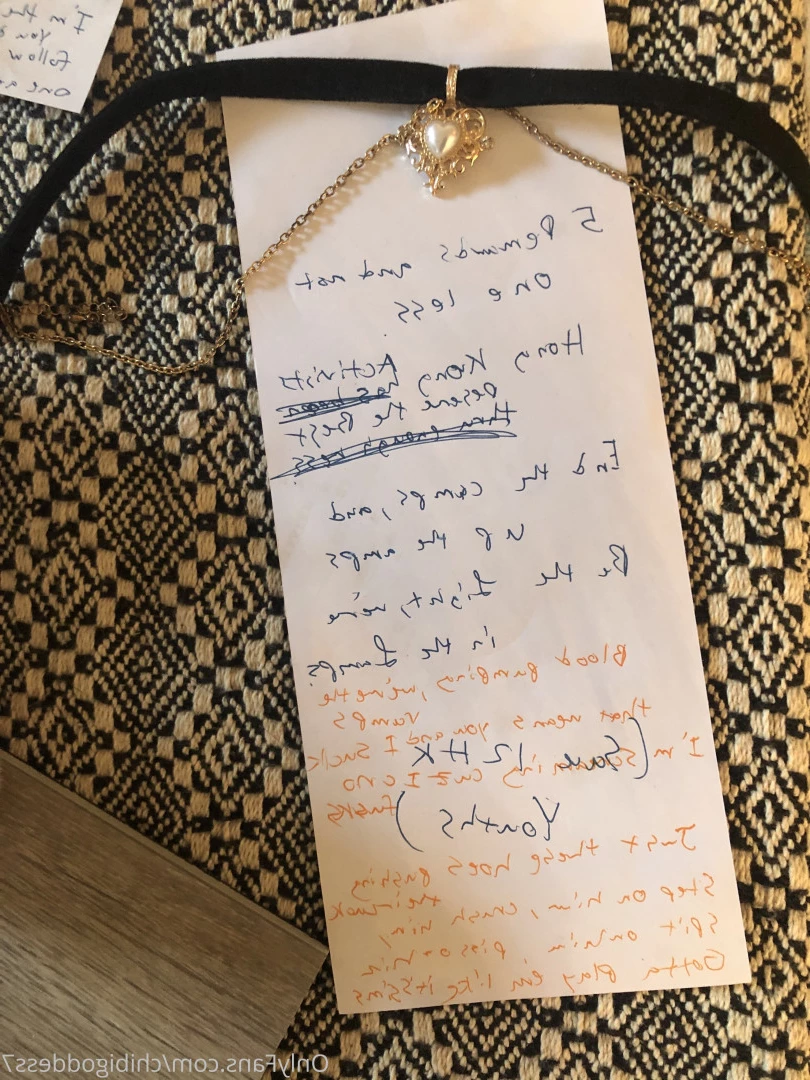 I'm the
you
follow
one
5 Demands and not
one less
Hong Kong Activists
Deserve the Best
End the camps, and
up the amps
Be the Light, we're
in the Lamps
Blood pumping, we're the
vamps
that means you and I suck
I'm screaming cuz I c no
fangs
(Save 12 HK
Youths)
Just these hoes pushing
their luck
Step on him, crush him,
spit on him, piss on him
Gotta play em like it's sims
OnlyFans.com/chibigoddess7